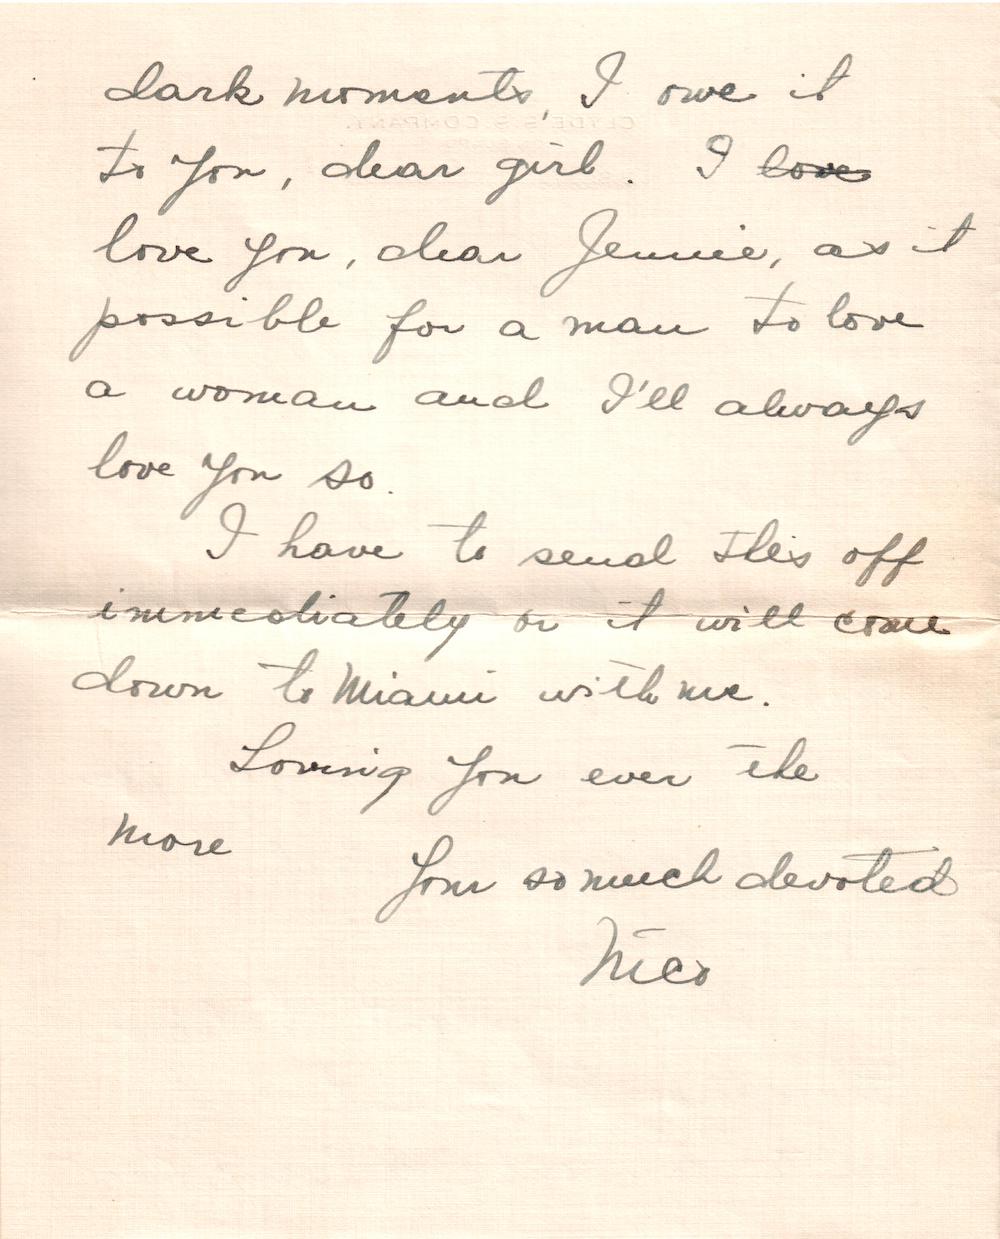 dark moments, I owe it
to you, dear girl. I love
love you, dear Jennie, as it
possible for a man to love
a woman and I'll always
love you so.
I have to send this off
immediately or it will come
down to Miami with me.
Loving you ever the
more
Your so much devoted
Nico